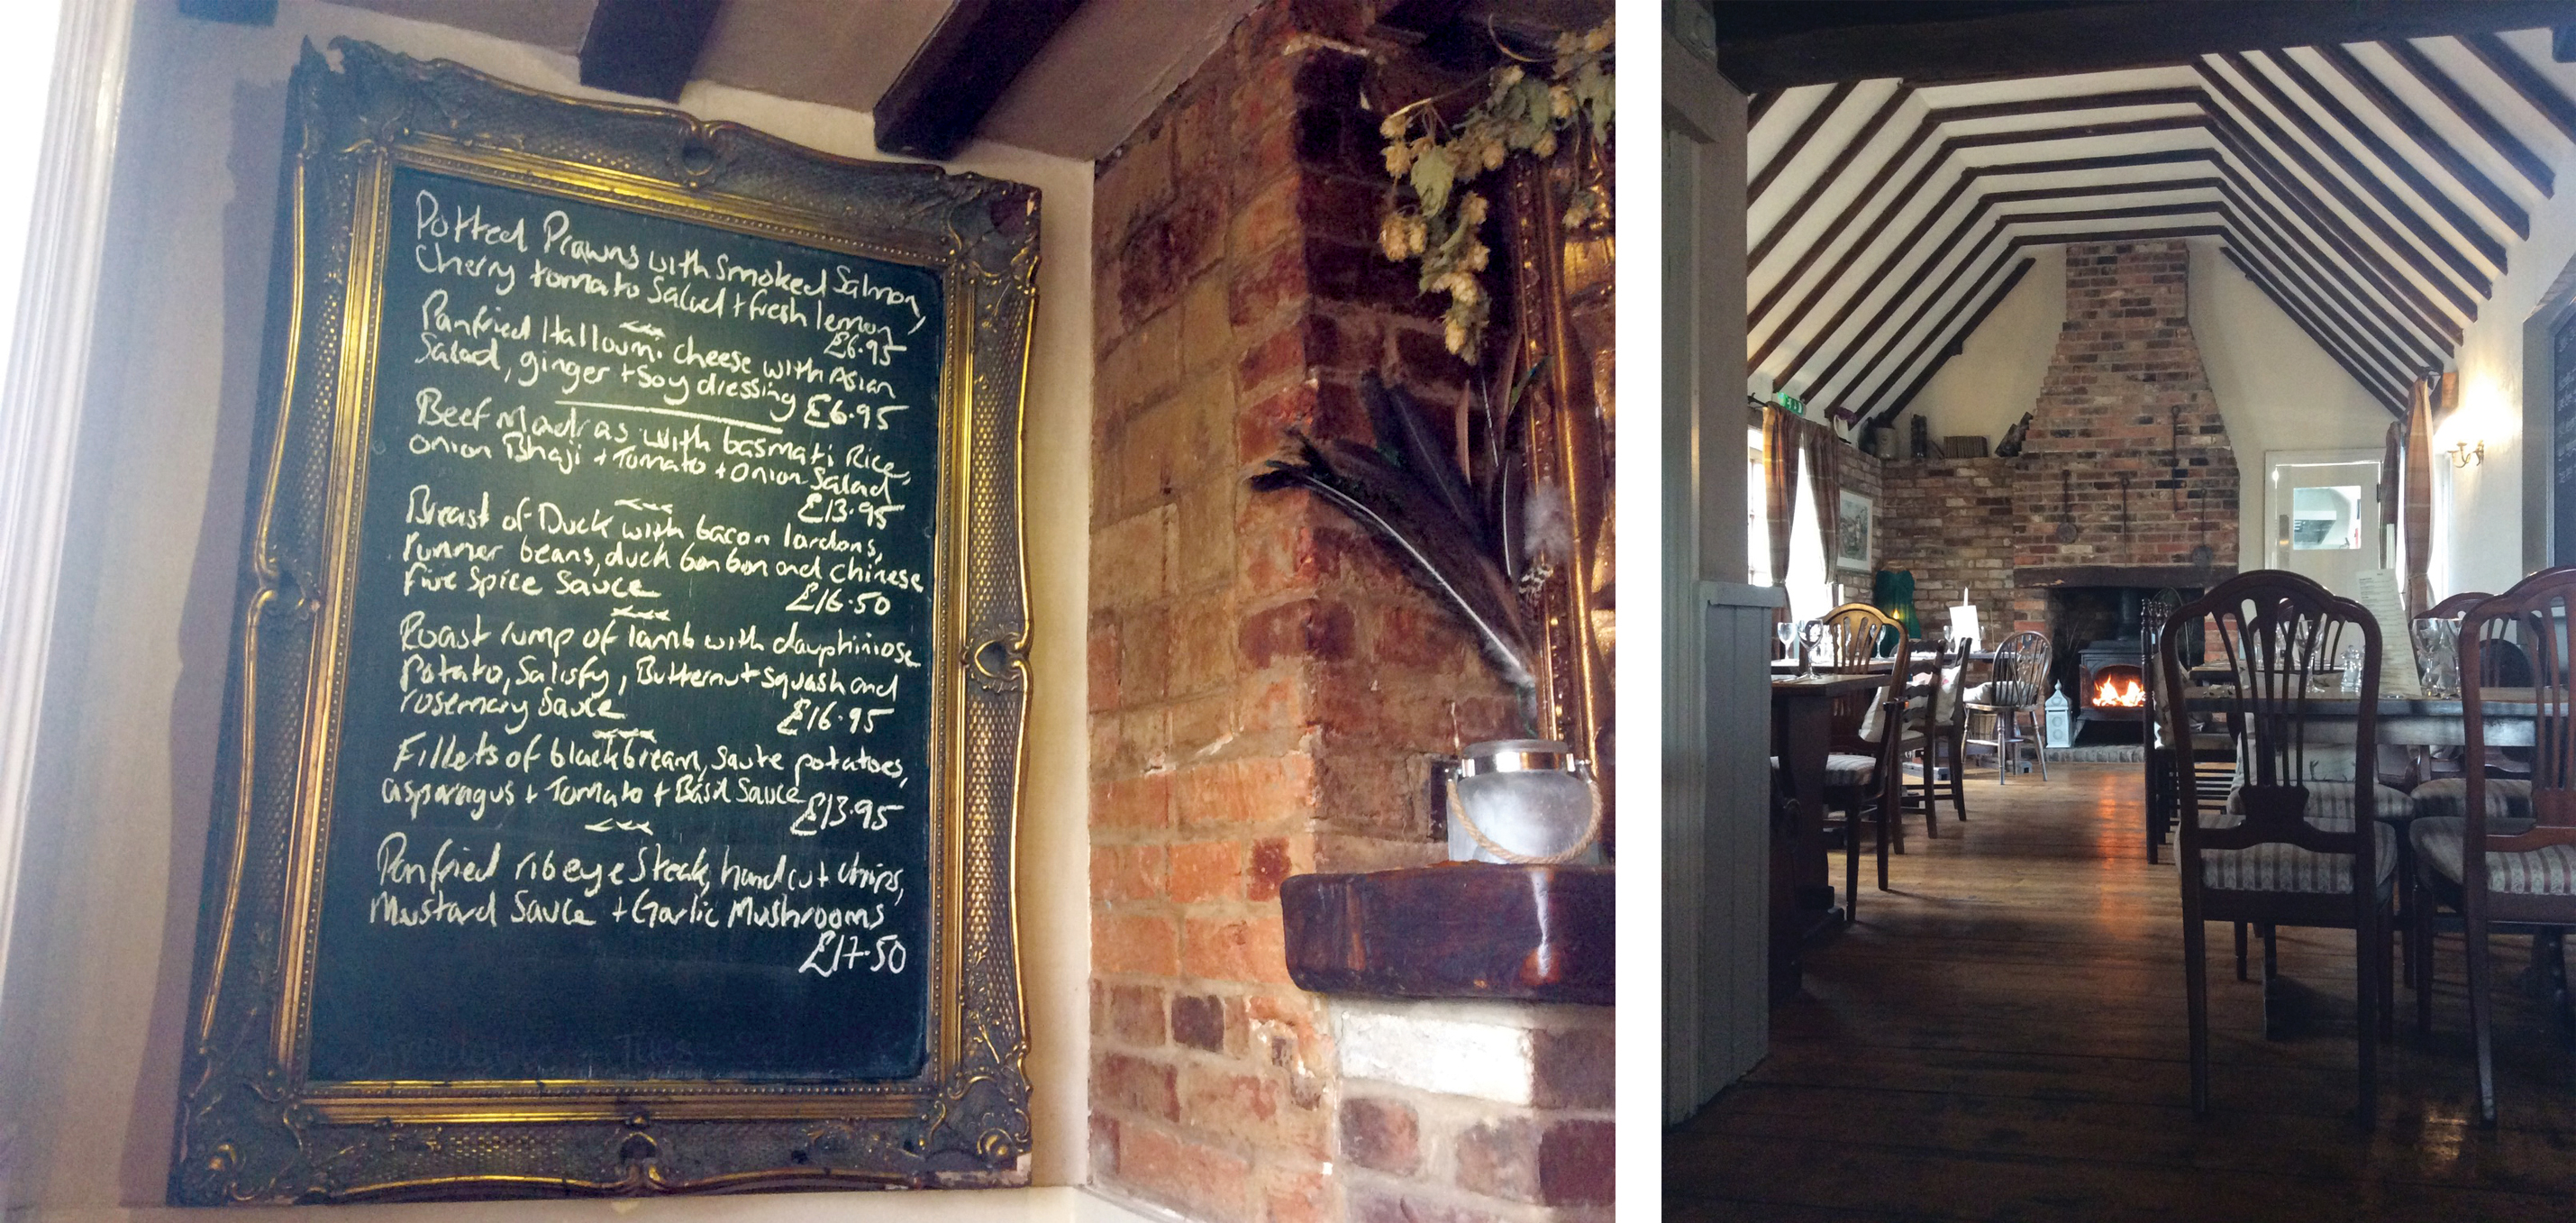 Potted Prawns with Smoked Salmon,
Cherry tomato Salad + fresh lemon
£6.95
Panfried Halloumi cheese with Asian
Salad, ginger + Soy dressing £6.95
Beef Madras with basmati Rice,
Onion Bhaji + Tomato + Onion Salad
£13.95
Breast of Duck with bacon lardons,
runner beans, duck bonbon and chinese
five Spice Sauce £16.50
Roast rump of lamb with dauphiniose
Potato, Salisfy, Butternut squash and
rosemary Sauce £16.95
Fillets of black bream, Saute potatoes,
asparagus + Tomato + Basil Sauce £13.95
Panfried ribeye Steak, hand cut chips,
Mustard Sauce + Garlic Mushrooms
£17.50